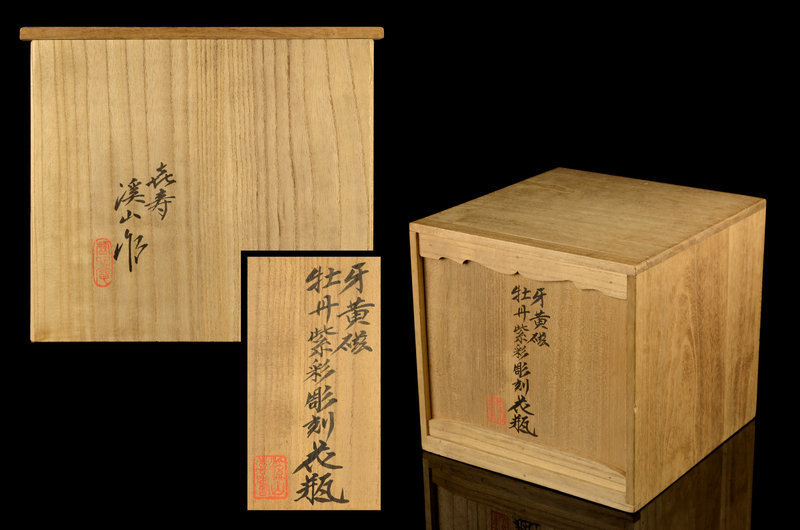 喜寿
溪山作
牙黄磁
牡丹紫彩彫刻花瓶
牙黄磁
牡丹紫彩彫刻花瓶